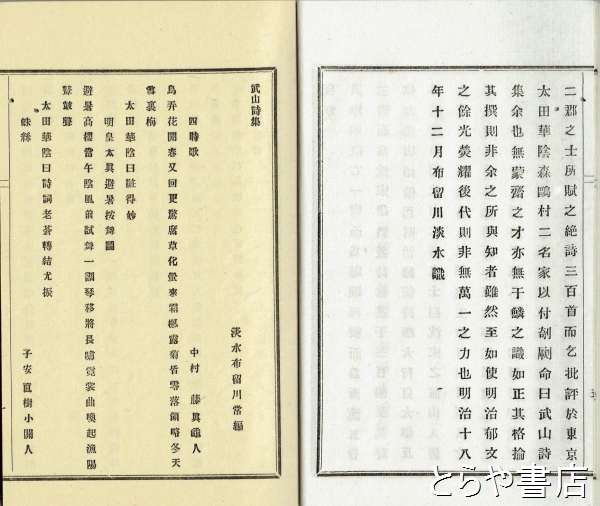 二郡之士所賦之絶詩三百首而乞批評於東京
太田華陰森鷗村二名家以付剞劂命曰武山詩
集余也無蒙齋之才亦無于鱗之識如正其格掄
其撰則非余之所與知者雖然至如使明治郁文
之餘光熒耀後代則非無萬一之力也明治十八
年十二月布留川淡水識
武山詩集
淡水布留川常編
四時歌
中村 藤眞
鳥弄花開春又回更驚腐草化螢來霜楓露菊皆零落領略冬天
雪裏梅
太田華陰曰
得妙
明皇太眞避暑按舞圖
子安直樹小閒人
避暑高樓當午陰風前試舞一調琴移將長
霓裳曲喚起漁陽
鼙鼓聲
太田華陰曰詩詞老蒼轉結尤振
とらや書店